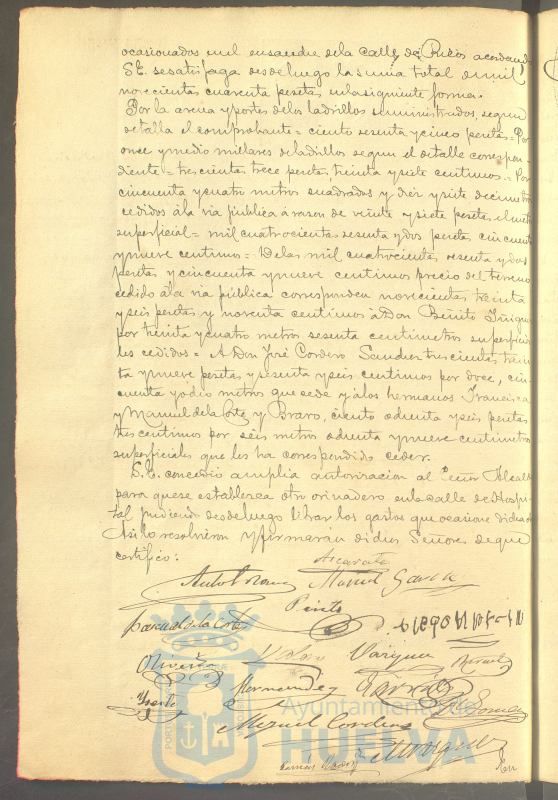 ocasionados en el ensanche de la calle de Rubios acordando
S.E. se satisfaga desde luego la suma total de mil
novecientas cuarenta pesetas en la siguiente forma.
Por la arena y portes de los ladrillos suministrados, segun
detalla el comprobante = ciento sesenta y cinco pesetas = Por
once y medio millares de ladrillos segun el detalle correspon-
diente = trescientas trece pesetas, treinta y siete centimos. = Por
cincuenta y cuatro metros cuadrados y diez y siete decimetros
cedidos á la via pública á razon de veinte y siete pesetas el metro
superficial = mil cuatrocientas sesenta y dos pesetas cincuenta
y nueve centimos = De las mil cuatrocientas sesenta y dos
pesetas y cincuenta y nueve centimos precio del terreno
cedido á la via pública corresponden novecientas treinta
y seis pesetas y noventa centimos á Don Benito
por treinta y cuatro metros sesenta centimetros superficia-
les cedidos = A Don José Cordero Sanchez trescientas trein-
ta y nueve pesetas y sesenta y seis centimos por doce, cin-
cuenta y ocho metros que cede y á los hermanos Francisca
y Manuel de la Corte y Bravo, ciento ochenta y seis pesetas
tres centimos por seis metros ochenta y nueve centimetros
superficiales que les ha correspondido ceder.
S.E. concedió amplia autorizacion al Señor Alcalde
para que se establezca otro orinadero en la calle de Hospi-
tal pudiendo desde luego librar los gastos que ocasione dicha
Asi lo resolvieron y firmaran dichos Señores de que
certifico:
Manuel Garcia
Pinto
Pascual de la Corte
Oliveira Vazquez
Hernandez
Miguel Cordero
Marquez
Ayuntamiento de
HUELVA